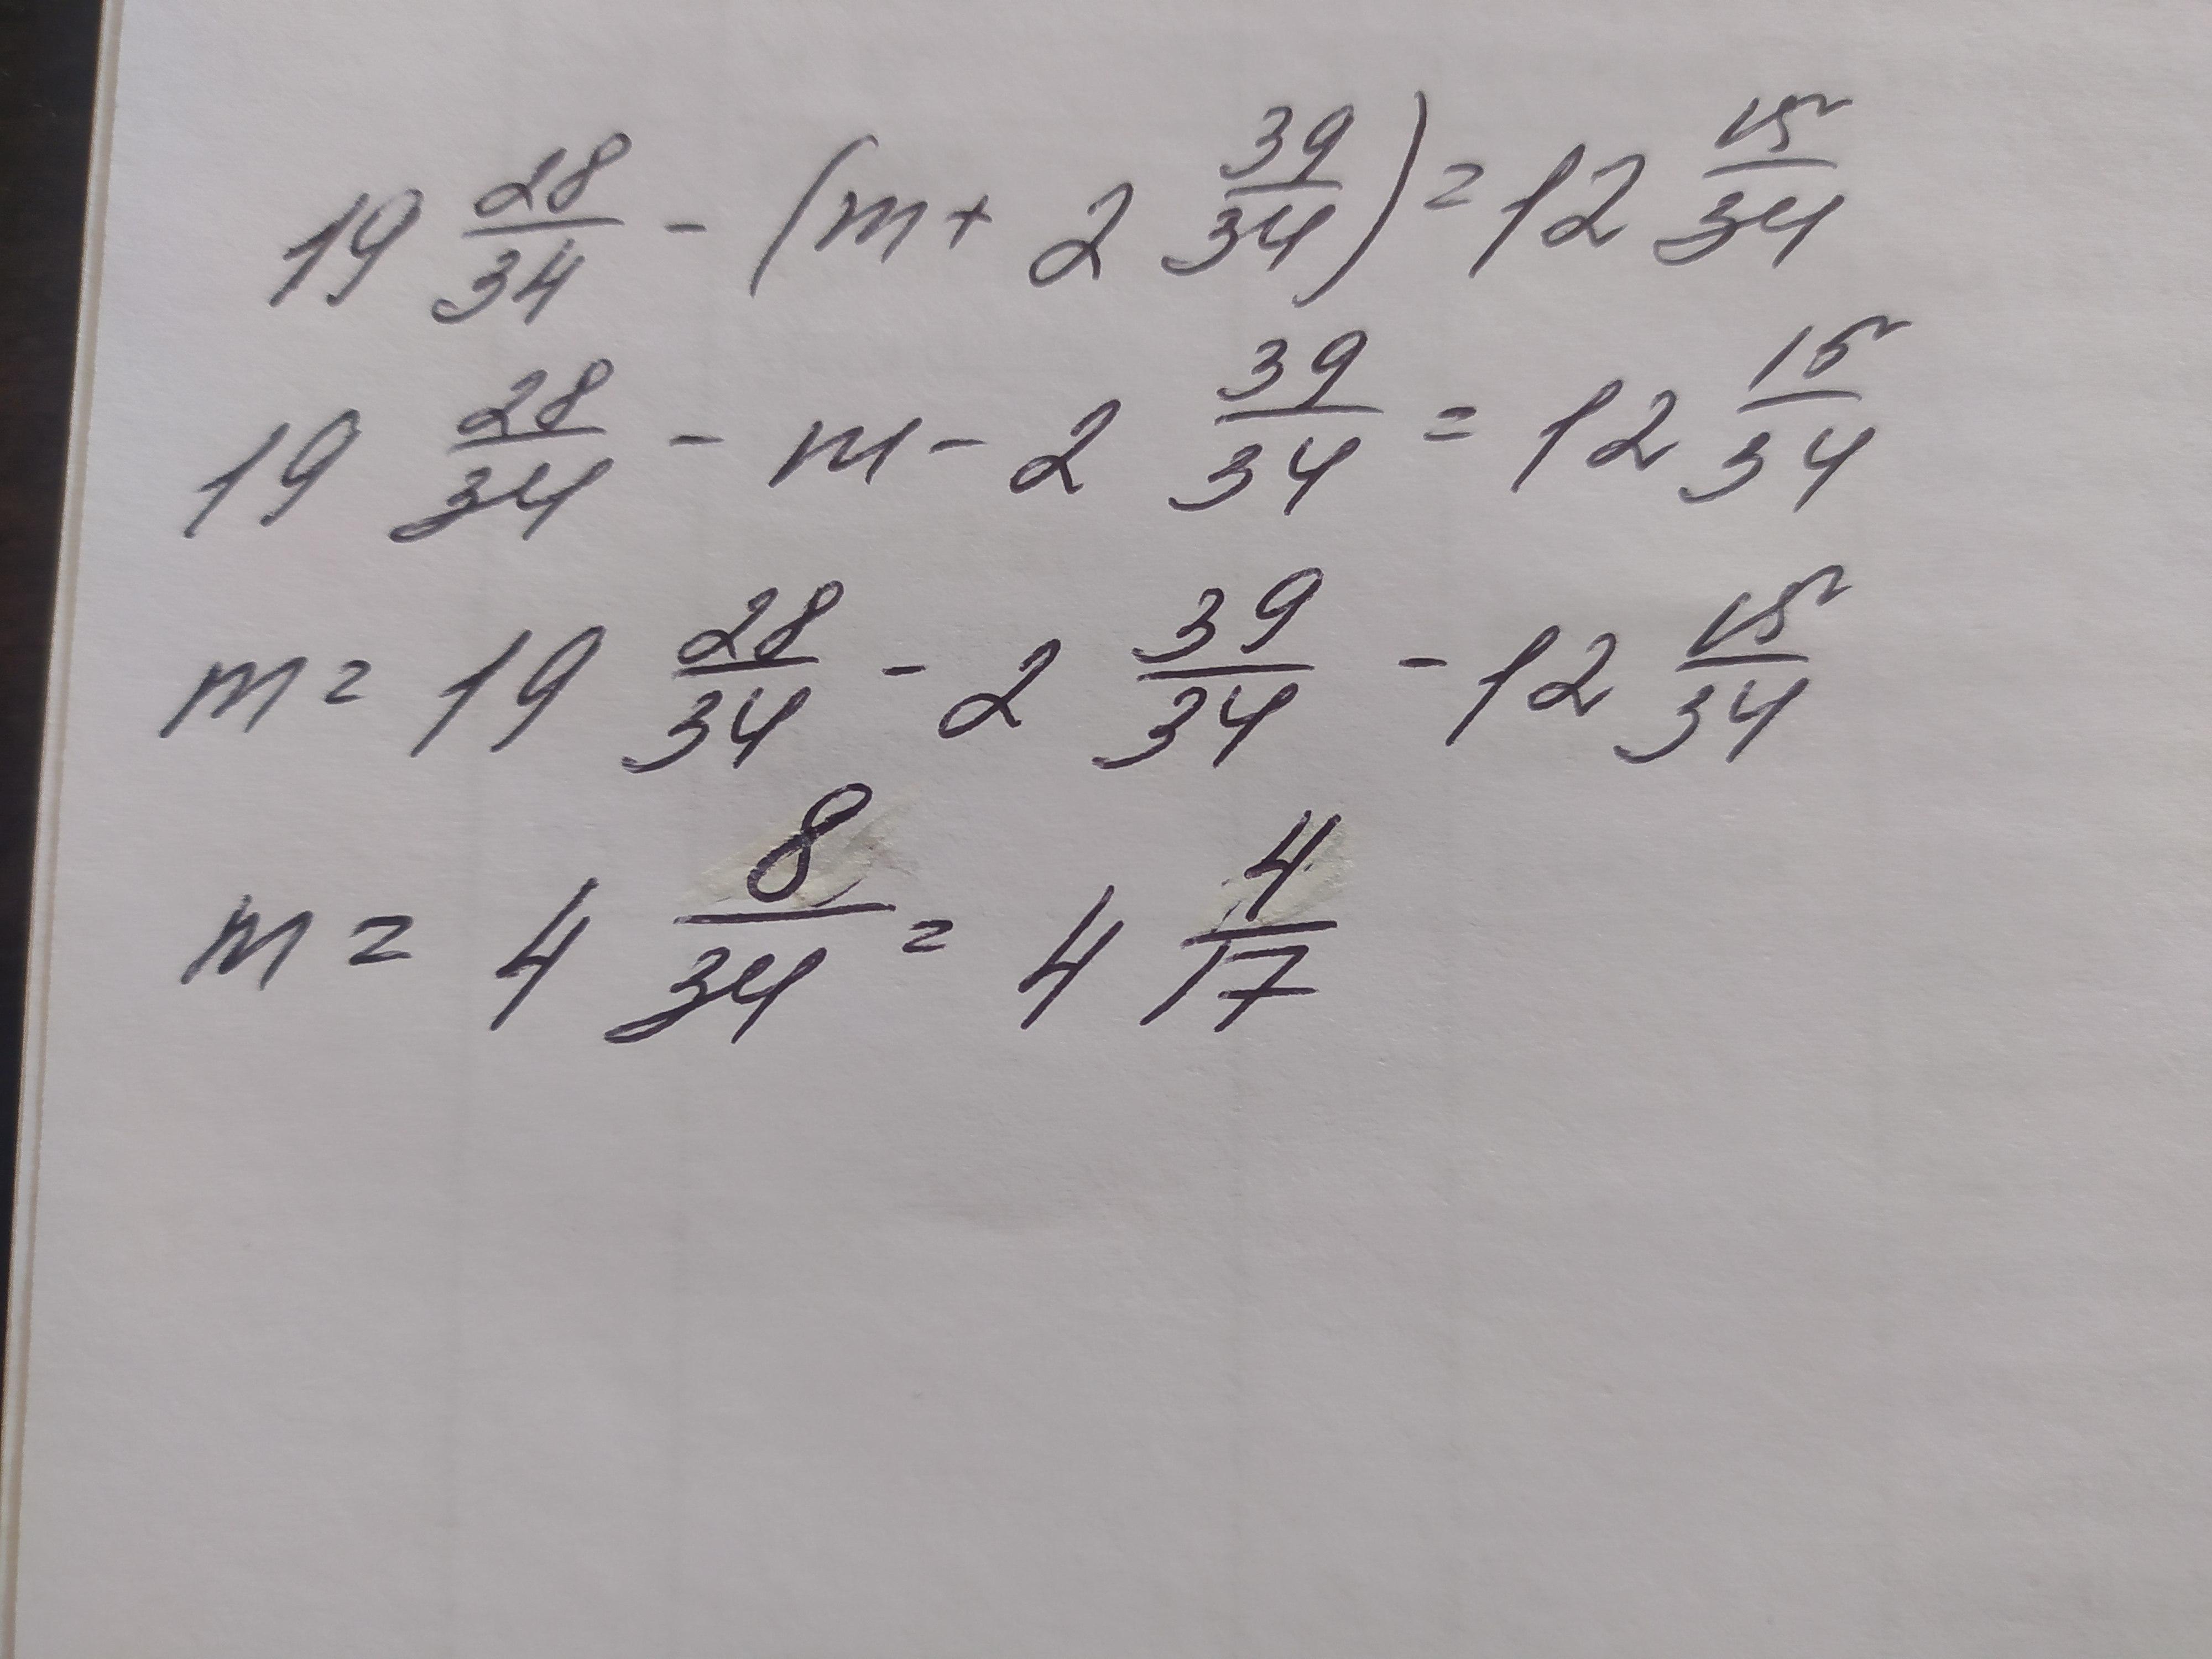 19 28/34 - (m + 2 39/34) = 12 15/34
19 28/34 - m - 2 39/34 = 12 15/34
m = 19 28/34 - 2 39/34 - 12 15/34
m = 4 8/34 = 4 4/17